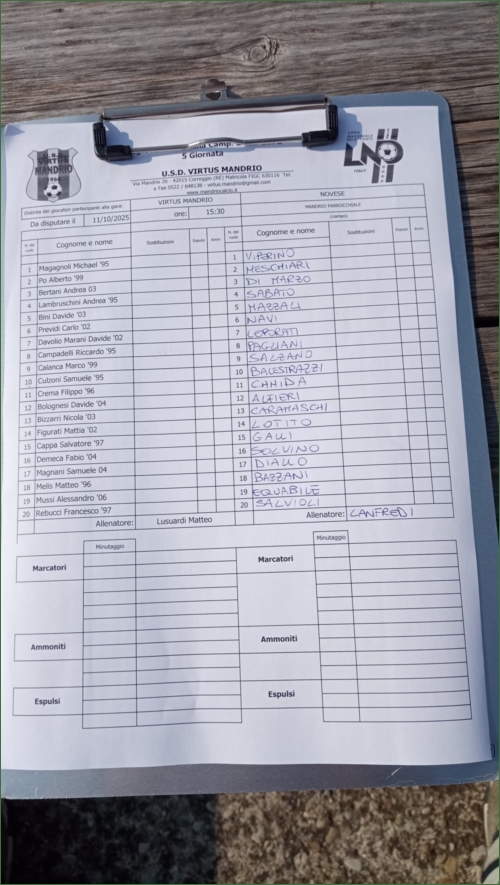 Camp.
5 Giornata
VIRTUS
MANDRIO
U.S.D. VIRTUS MANDRIO
Via Mandrio 26 - 42015 Correggio (RE) Matricola FIGC 630116 Tel.
e Fax 0522 / 648138 - virtus.mandrio@gmail.com
www.mandriocalcio.it
LND
ITALY
Distinta dei giocatori partecipanti alla gara: VIRTUS MANDRIO NOVESE
Da disputare il 11/10/2025 ore: 15:30 MANDRIO PARROCCHIALE
(campo)
Cognome e nome Sostituzioni Espulsi Amm. Cognome e nome Sostituzioni Espulsi Amm.
1 Magagnoli Michael '95 1 VIPERINO
2 Po Alberto '99 2 MESCHIARI
3 Bertani Andrea 03 3 DI MARZO
4 Lambruschini Andrea '95 4 SABATO
5 Bini Davide '03 5 MAZZALI
6 Previdi Carlo '02 6 NAVI
7 Davolio Marani Davide '02 7 LEPORATI
8 Campadelli Riccardo '95 8 PAGLIANI
9 Calanca Marco '99 9 SALZANO
10 Culzoni Samuele '95 10 BALESTRAZZI
11 Crema Filippo '96 11 CANIDA
12 Bolognesi Davide '04 12 ALFIERI
13 Bizzarri Nicola '03 13 CARAMASCHI
14 Figurati Mattia '02 14 LOTITO
15 Cappa Salvatore '97 15 GALLI
16 Demeca Fabio '04 16 SOLVINO
17 Magnani Samuele 04 17 DIALLO
18 Melis Matteo '96 18 BAZZANI
19 Mussi Alessandro '06 19 EQUABILE
20 Rebucci Francesco '97 20 SALVIOLI
Allenatore: Lusuardi Matteo Allenatore: LANFREDI
Minutaggio Minutaggio
Marcatori Marcatori
Ammoniti Ammoniti
Espulsi Espulsi